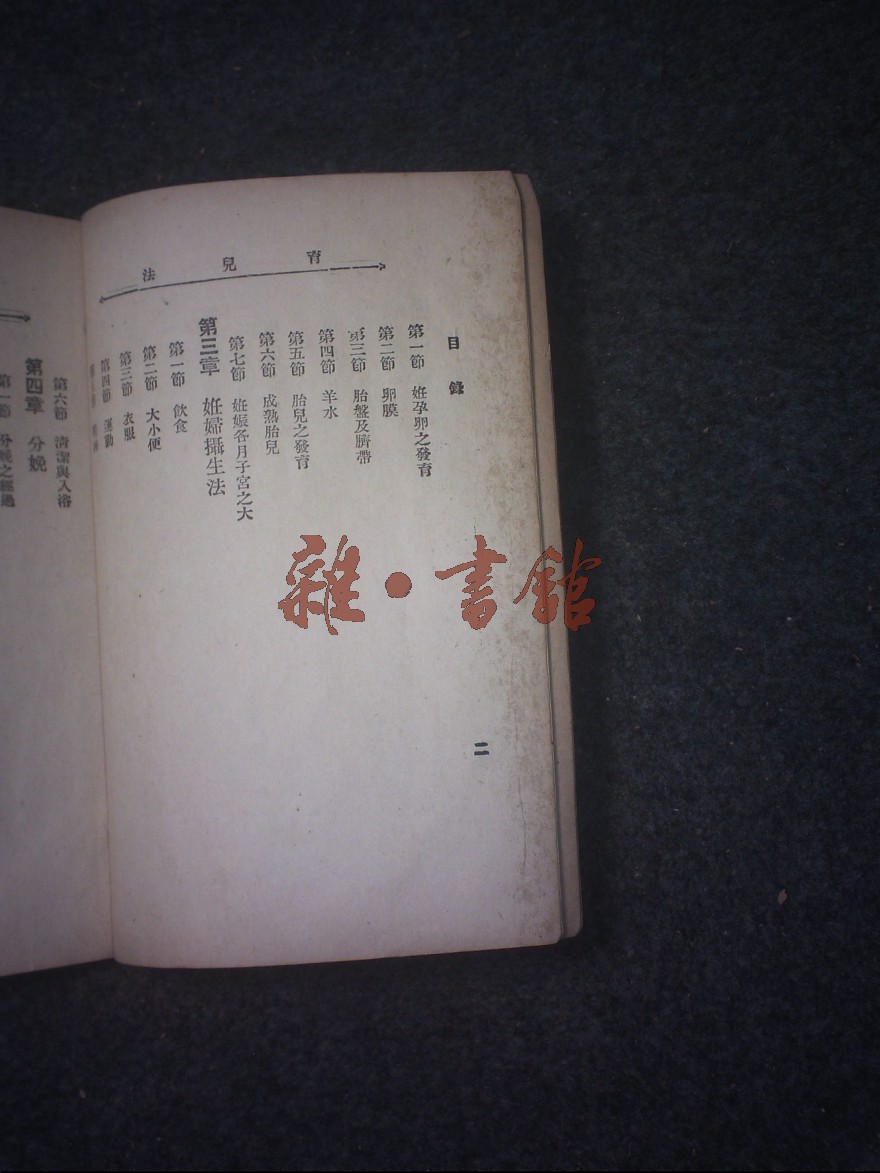 育兒法
目錄
第一節 妊孕卵之發育
第二節 卵膜
第三節 胎盤及臍帶
第四節 羊水
第五節 胎兒之發育
第六節 成熟胎兒
第七節 妊娠各月子宮之大
第三章 妊婦攝生法
第一節 飲食
第二節 大小便
第三節 衣服
第四節 運動
二
第六節 清潔與入浴
第四章 分娩
第一節 分娩之經過
雜·書館